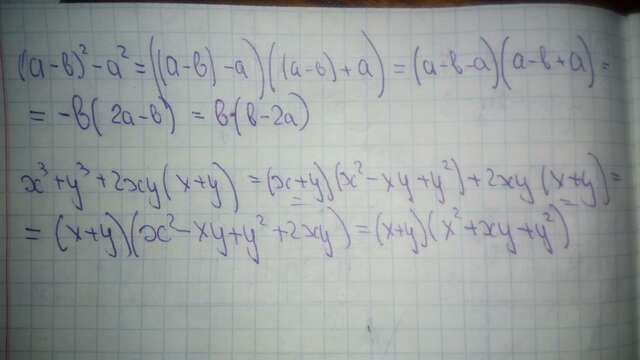 (a-b)² - a² = ((a-b) - a)((a-b) + a) = (a-b-a)(a-b+a) =
= -b(2a-b) = b·(b-2a)
x³+y³+2xy(x+y) = (x+y)(x²-xy+y²)+2xy(x+y) =
= (x+y)(x²-xy+y²+2xy) = (x+y)(x²+xy+y²)